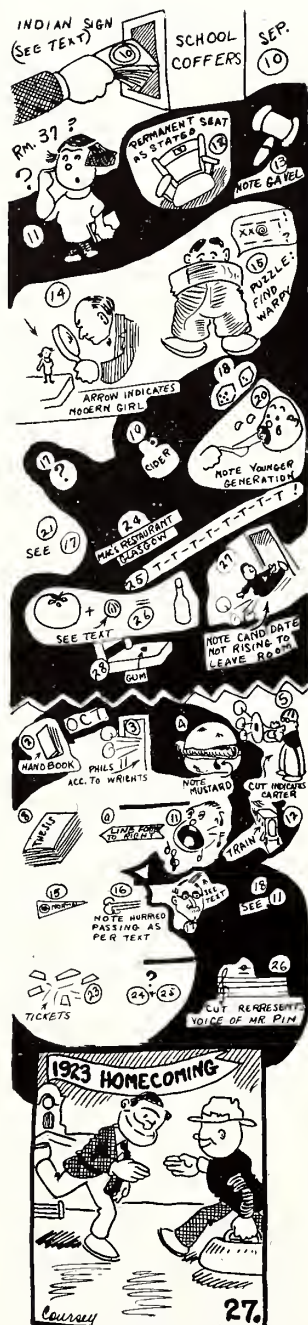 INDIAN SIGN
(SEE TEXT)
10
SCHOOL
COFFERS
SEP.
10
RM. 37 ?
?
11
PERMANENT SEAT
AS STATED
12
13
NOTE GAVEL
14
ARROW INDICATES
MODERN GIRL
XX@ !
?
15
PUZZLE:
FIND
WARPY
17
?
19
CIDER
18
20
NOTE YOUNGER
GENERATION
21
SEE 17
24
MAC'S RESTAURANT
GLASGOW
25 T-T-T-T-T-T-T-T !
+ = 26
SEE TEXT
27
NOTE CANDIDATE
NOT RISING TO
LEAVE ROOM
28
GUM
OCT.
2
HANDBOOK
3
PHILS
ACC. TO WRIGHTS
4
NOTE
MUSTARD
5
CUT INDICATES
CARTER
8
THESIS
9
LINE FORM
TO RIGHT
11
12
TRAIN
15
16
NOTE HURRIED
PASSING AS
PER TEXT
SEE
TEXT
18
SEE 11
23
TICKETS
?
24 + 25
26
CUT REPRESENTS
VOICE OF MR PIN
1923 HOMECOMING
Coursey
27.